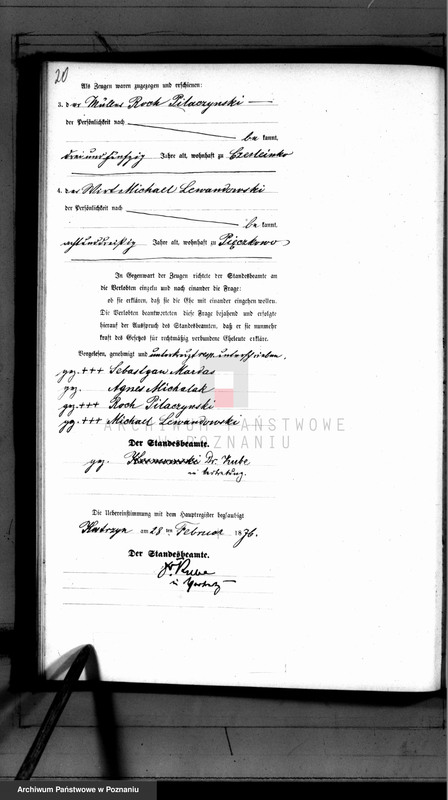 20
Als Zeugen waren zugezogen und erschienen:
3. der Müller Roch Pilaczynski
der Persönlichkeit nach
be kannt,
dreiundfünfzig Jahre alt, wohnhaft zu Czerleinko
4. der Wirt Michael Lewandowski
der Persönlichkeit nach
be kannt,
achtunddreißig Jahre alt, wohnhaft zu Pięczkowo
In Gegenwart der Zeugen richtete der Standesbeamte an
die Verlobten einzeln und nach einander die Frage:
ob sie erklären, daß sie die Ehe mit einander eingehen wollen.
Die Verlobten beantworteten diese Frage bejahend und erfolgte
hierauf der Ausspruch des Standesbeamten, daß er sie nunmehr
kraft des Gesetzes für rechtmäßig verbundene Eheleute erkläre.
Vorgelesen, genehmigt und unterkreuzt resp. unterschrieben.
gez. +++ Sebastyan Mardas
gez. Agnes Michalak
gez. +++ Roch Pilaczynski
gez. +++ Michael Lewandowski
Der Standesbeamte.
gez. Dr. Kube
in Vertretung.
Die Uebereinstimmung mit dem Hauptregister beglaubigt
Kostrzyn am 28 ten Februar 1876.
Der Standesbeamte.
Dr. Kube
in Vertretg
ARCHIWUM PAŃSTWOWE
W POZNANIU
Archiwum Państwowe w Poznaniu